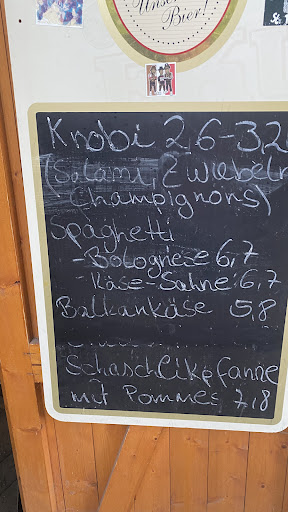 Unser
Bier!
Knobi 2,6-3,2
(Salami, Zwiebeln
Champignons)
Spaghetti
-Bolognese 6,7
-Käse-Sahne 6,7
Balkankäse 5,8
Schaschlikpfanne
mit Pommes 7,8